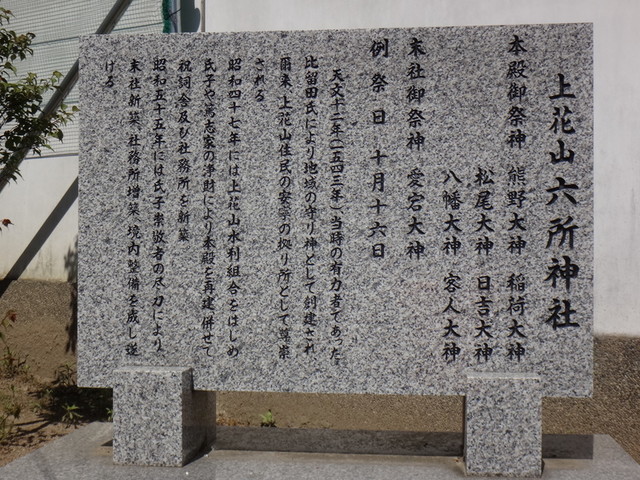 上花山六所神社
本殿御祭神 熊野大神 稲荷大神
松尾大神 日吉大神
八幡大神 客人大神
末社御祭神 愛宕大神
例祭日 十月十六日
天文十二年(一五四三年)当時の有力者であった
比留田氏により地域の守り神として創建され
爾来 上花山住民の安寧の拠り所として尊崇
される
昭和四十七年には上花山水利組合をはじめ
氏子や篤志家の浄財により本殿を再建 併せて
祝詞舎及び社務所を新築
昭和五十五年には氏子崇敬者の尽力により
末社新築 社務所増築 境内整備を成し遂
げる